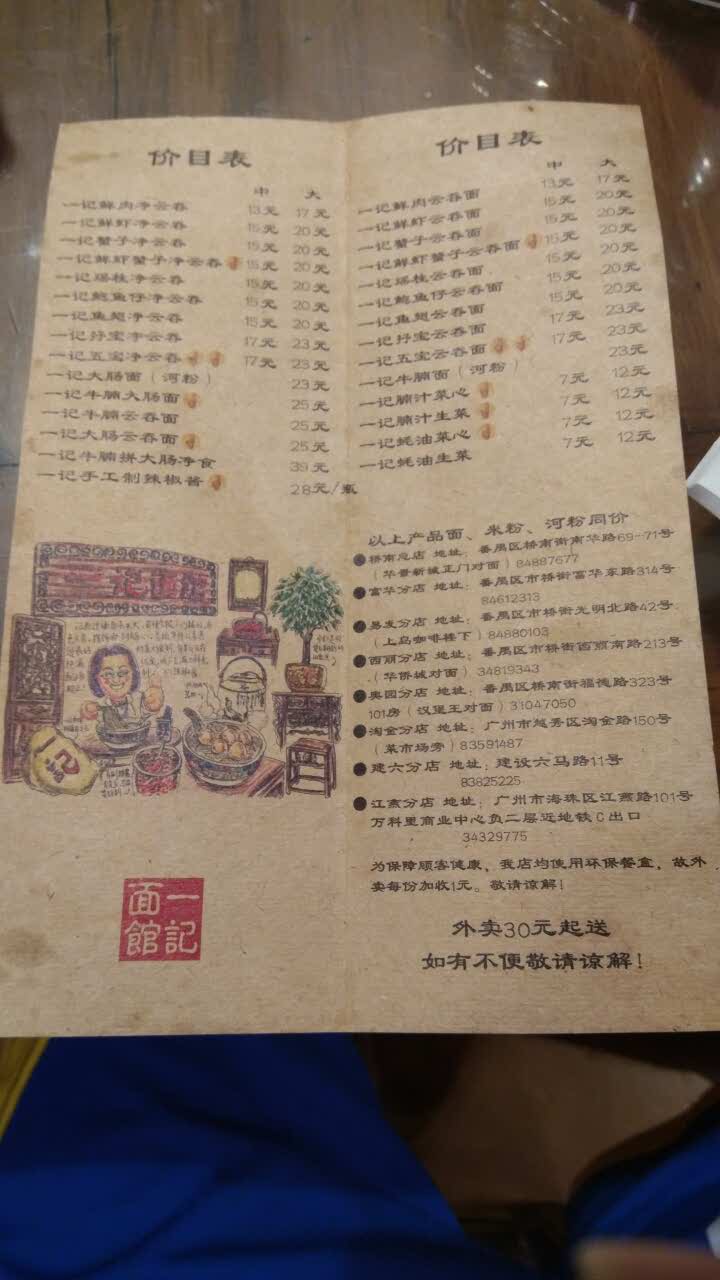 价目表
中 大
一记鲜肉净云吞 13元 17元
一记鲜虾净云吞 15元 20元
一记蟹子净云吞 15元 20元
一记鲜虾蟹子净云吞 15元 20元
一记瑶柱净云吞 15元 20元
一记鲍鱼仔净云吞 15元 20元
一记鱼翅净云吞 15元 20元
一记孖宝净云吞 17元 23元
一记五宝净云吞 17元 23元
一记大肠面（河粉） 23元
一记牛腩大肠面 25元
一记牛腩云吞面 25元
一记大肠云吞面 25元
一记牛腩拼大肠净食 39元
一记手工制辣椒酱 28元/瓶
一記
面館
价目表
中 大
一记鲜肉云吞面 13元 17元
一记鲜虾云吞面 15元 20元
一记蟹子云吞面 15元 20元
一记鲜虾蟹子云吞面 15元 20元
一记瑶柱云吞面 15元 20元
一记鲍鱼仔云吞面 15元 20元
一记鱼翅云吞面 15元 20元
一记孖宝云吞面 17元 23元
一记五宝云吞面 17元 23元
一记牛腩面（河粉） 23元
一记腩汁菜心 7元 12元
一记腩汁生菜 7元 12元
一记蚝油菜心 7元 12元
一记蚝油生菜 7元 12元
以上产品面、米粉、河粉同价
桥南总店 地址：番禺区桥南街南华路69-71号
（华景新城正门对面）84887677
富华分店 地址：番禺区市桥街富华东路314号
84612313
易发分店 地址：番禺区市桥街光明北路42号
（上岛咖啡楼下）84880103
西丽分店 地址：番禺区市桥街西丽南路213号
（华侨城对面）34819343
奥园分店 地址：番禺区桥南街福德路323号
101房（汉堡王对面）31047050
淘金分店 地址：广州市越秀区淘金路150号
（菜市场旁）83591487
建六分店 地址：建设六马路11号
83825225
江燕分店 地址：广州市海珠区江燕路101号
万科里商业中心负二层近地铁C出口
34329775
为保障顾客健康，我店均使用环保餐盒，故外
卖每份加收1元。敬请谅解！
外卖30元起送
如有不便敬请谅解！